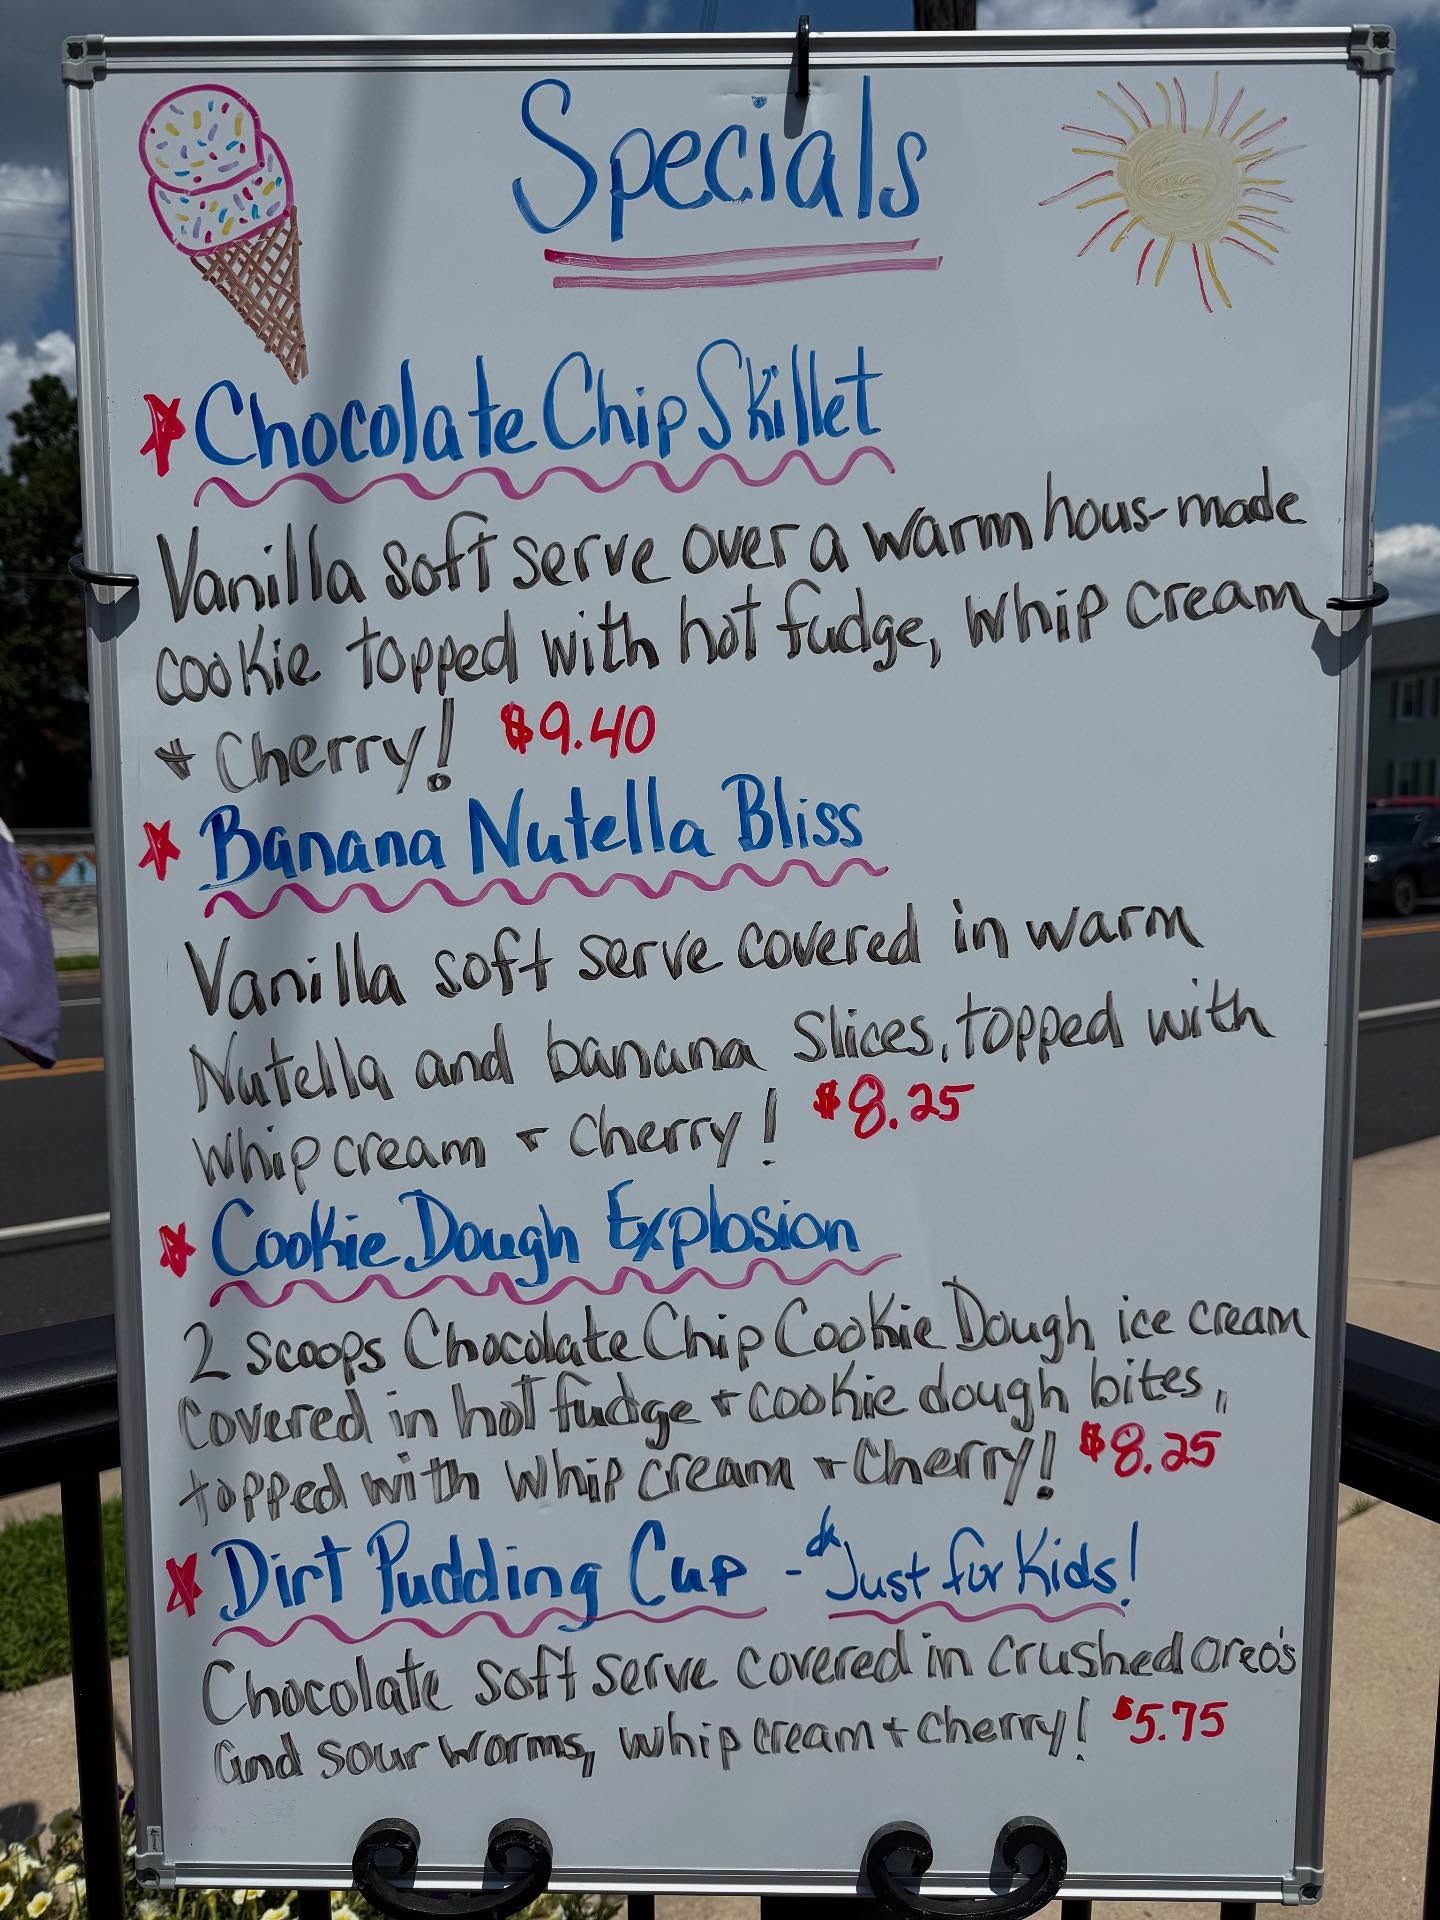 Specials
Chocolate Chip Skillet
Vanilla soft serve over a warm hous-made
cookie topped with hot fudge, whip cream
+ Cherry! $9.40
Banana Nutella Bliss
Vanilla soft serve covered in warm
Nutella and banana slices, topped with
whip cream + Cherry! $8.25
Cookie Dough Explosion
2 scoops Chocolate Chip Cookie Dough ice cream
covered in hot fudge + cookie dough bites,
topped with whip cream + Cherry! $8.25
Dirt Pudding Cup - Just for Kids!
Chocolate soft serve covered in crushed oreo's
and sour worms, whip cream + cherry! $5.75